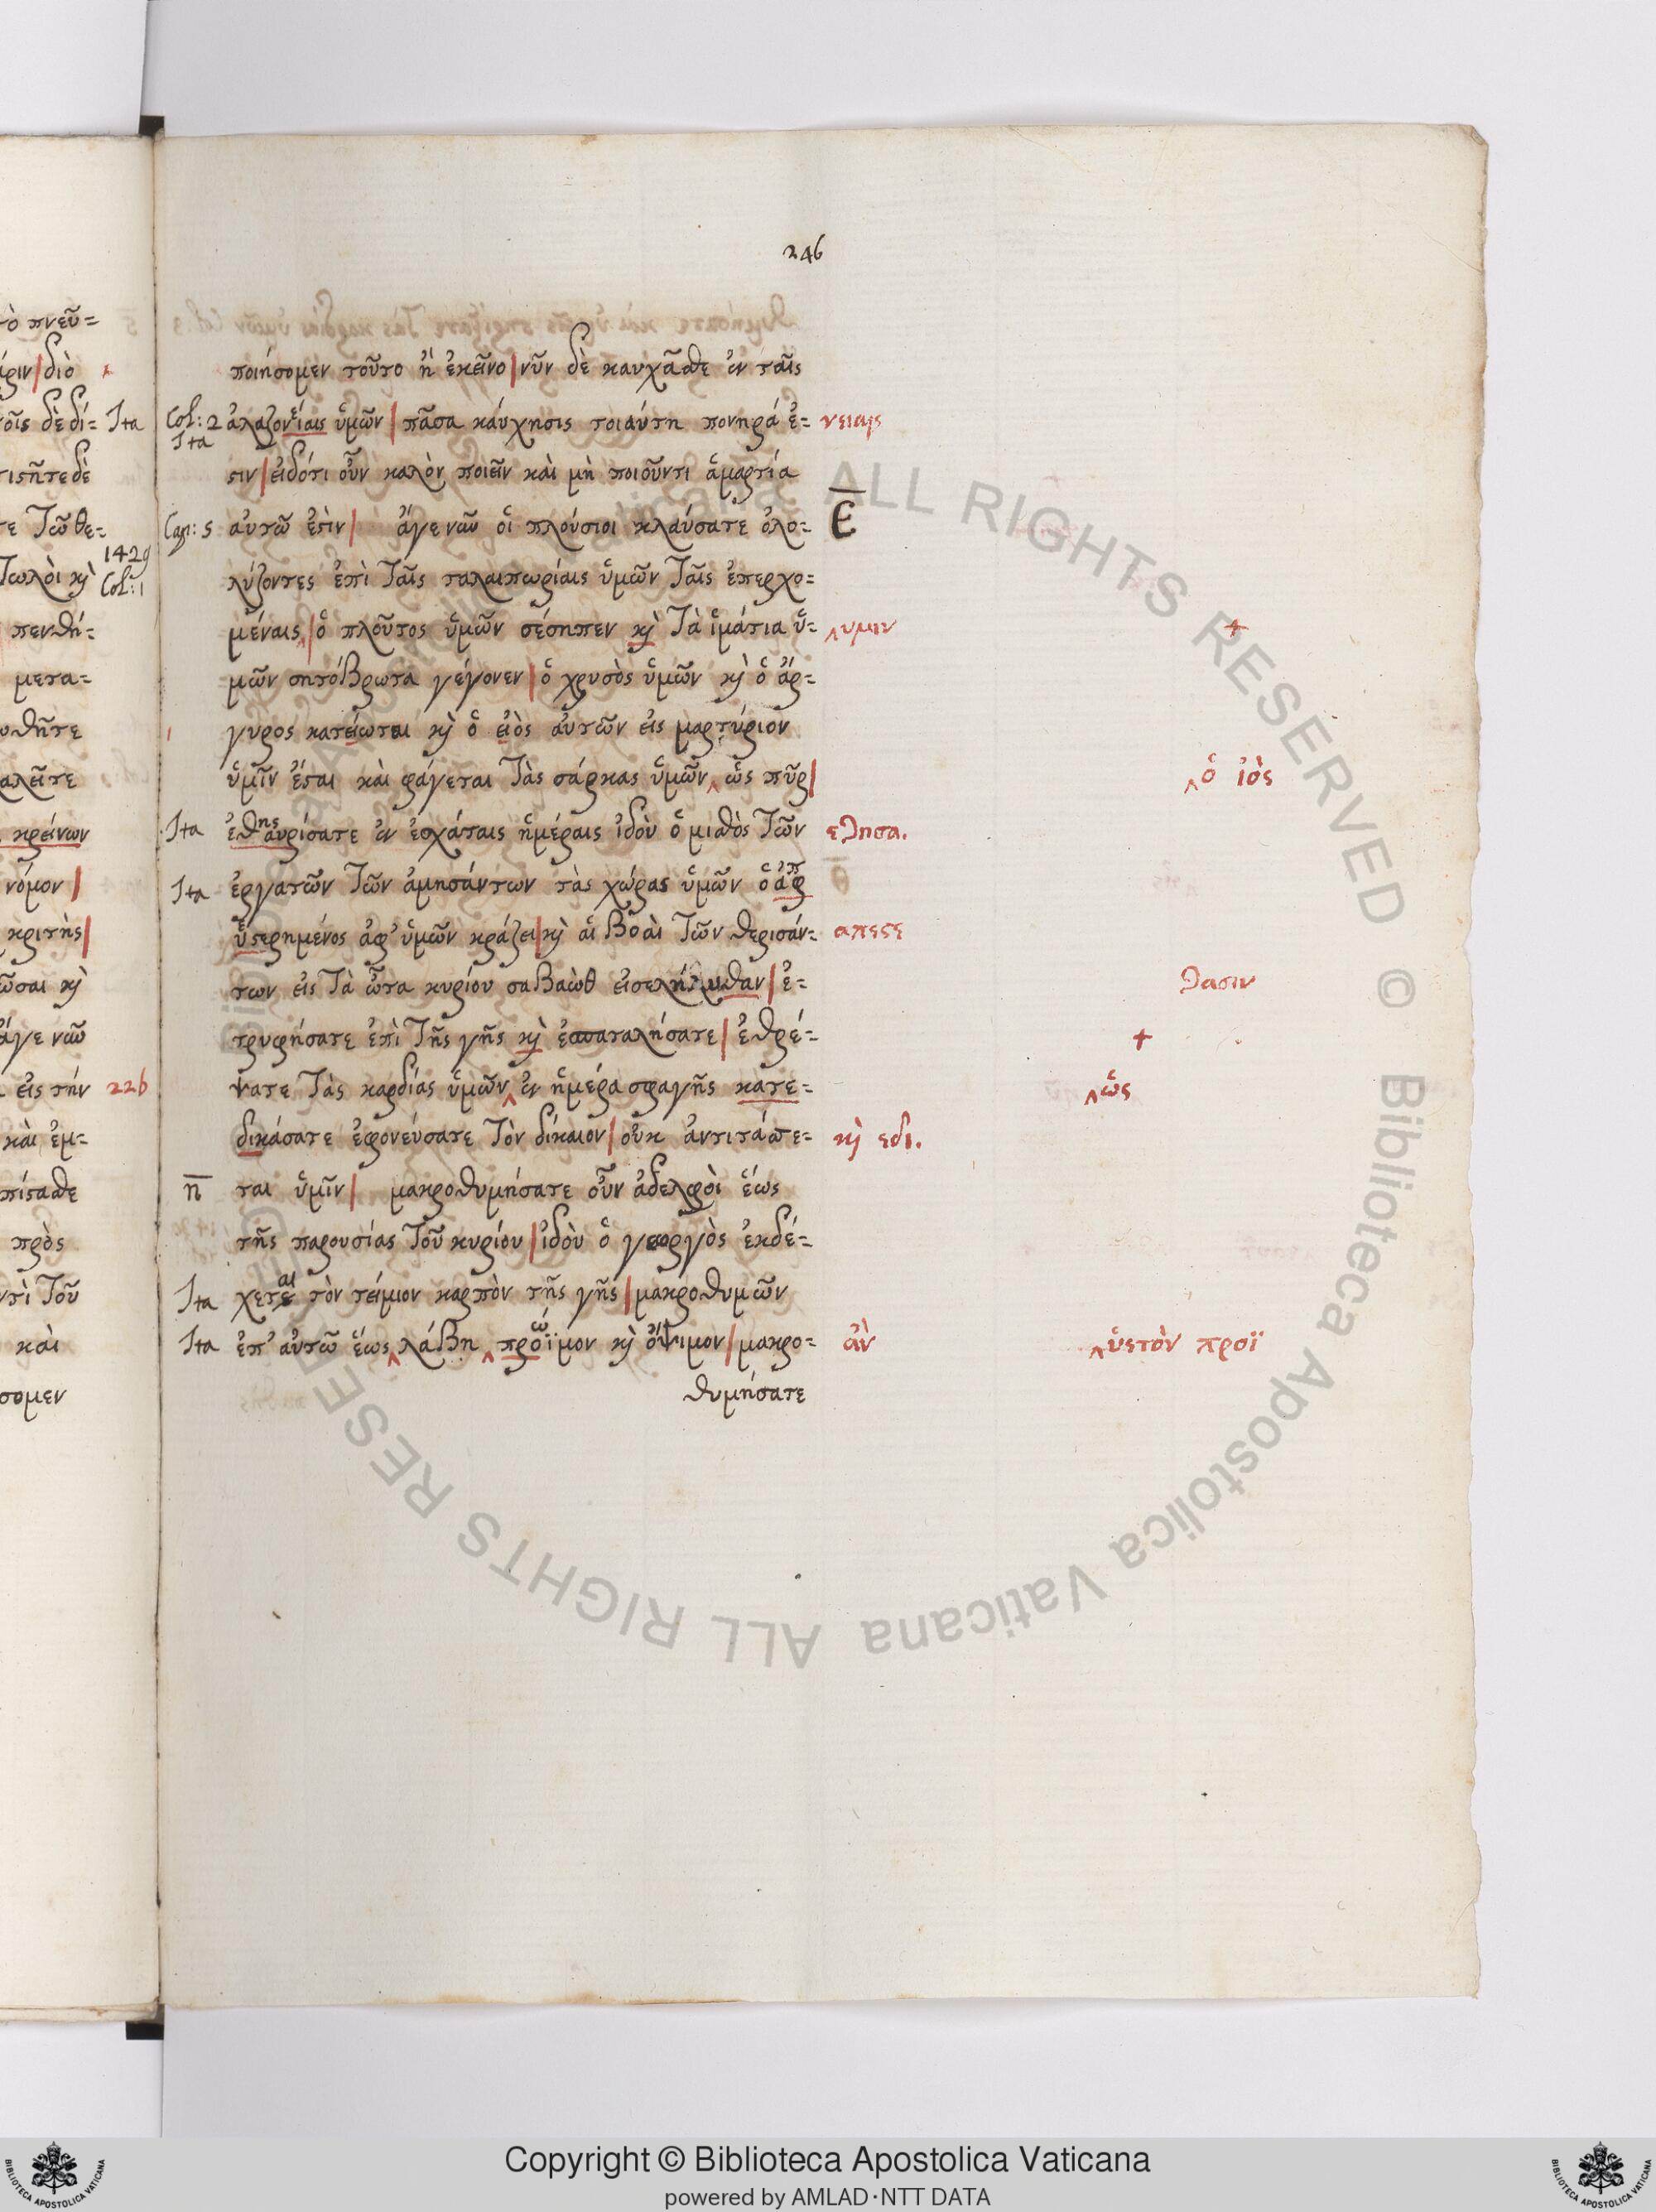 246
ποιήσομεν τοῦτο ἢ ἐκεῖνο | νῦν δὲ καυχᾶσθε ἐν ταῖς
Col: 2 ἀλαζονείαις ὑμῶν | πᾶσα καύχησις τοιαύτη πονηρά ἐ= νειαις
Ita
στιν | εἰδότι οὖν καλὸν ποιεῖν καὶ μὴ ποιοῦντι ἁμαρτία
Cap: 5 αὐτῶ ἐστὶν | ἄγε νῦν οἱ πλούσιοι κλαύσατε ὀλο= Ε
λύζοντες ἐπὶ ταῖς ταλαιπωρίαις ὑμῶν ταῖς ἐπερχο=
μέναις ^ | ὁ πλοῦτος ὑμῶν σέσηπεν κὶ τὰ ἱμάτια ὑ= ^ υμιν +
μῶν σητόβρωτα γέγονεν | ὁ χρυσὸς ὑμῶν κὶ ὁ ἄρ=
γυρος κατείωται κὶ ὁ εἰὸς αὐτῶν εἰς μαρτύριον
ὑμῖν ἔσται καὶ φάγεται τὰς σάρκας ὑμῶν ^ ὡς πῦρ | ^ ὁ ἰὸς
Ita ἐθησαυρίσατε ἐν ἐσχάταις ἡμέραις ἰδοὺ ὁ μισθὸς τῶν εθησα.
Ita ἐργατῶν τῶν ἀμησάντων τὰς χώρας ὑμῶν ὁ ἀφ
ὑστερημένος ἀφ' ὑμῶν κράζει | κὶ αἱ βοαὶ τῶν θερισάν= απεστε
των εἰς τὰ ὦτα κυρίου σαβαὼθ εἰσελήλυθαν | ἐ= θασιν
τρυφήσατε ἐπὶ τῆς γῆς κὶ ἐσπαταλήσατε | ἐθρέ= +
ψατε τὰς καρδίας ὑμῶν ^ ἐν ἡμέρα σφαγῆς κατε= ^ ὡς
δικάσατε ἐφονεύσατε τὸν δίκαιον | οὐκ ἀντιτάσσε= κὶ εδι.
η ται ὑμῖν | μακροθυμήσατε οὖν ἀδελφοὶ ἕως
τῆς παρουσίας τοῦ κυρίου | ἰδοὺ ὁ γεωργὸς ἐκδέ=
Ita χεται τὸν τείμιον καρπὸν τῆς γῆς | μακροθυμῶν
Ita ἐπ' αὐτῶ ἕως ^ λάβη ^ πρόϊμον κὶ ὄψιμον | μακρο= ἀν ^ ὑετὸν προϊ
θυμήσατε
Copyright © Biblioteca Apostolica Vaticana
powered by AMLAD·NTT DATA